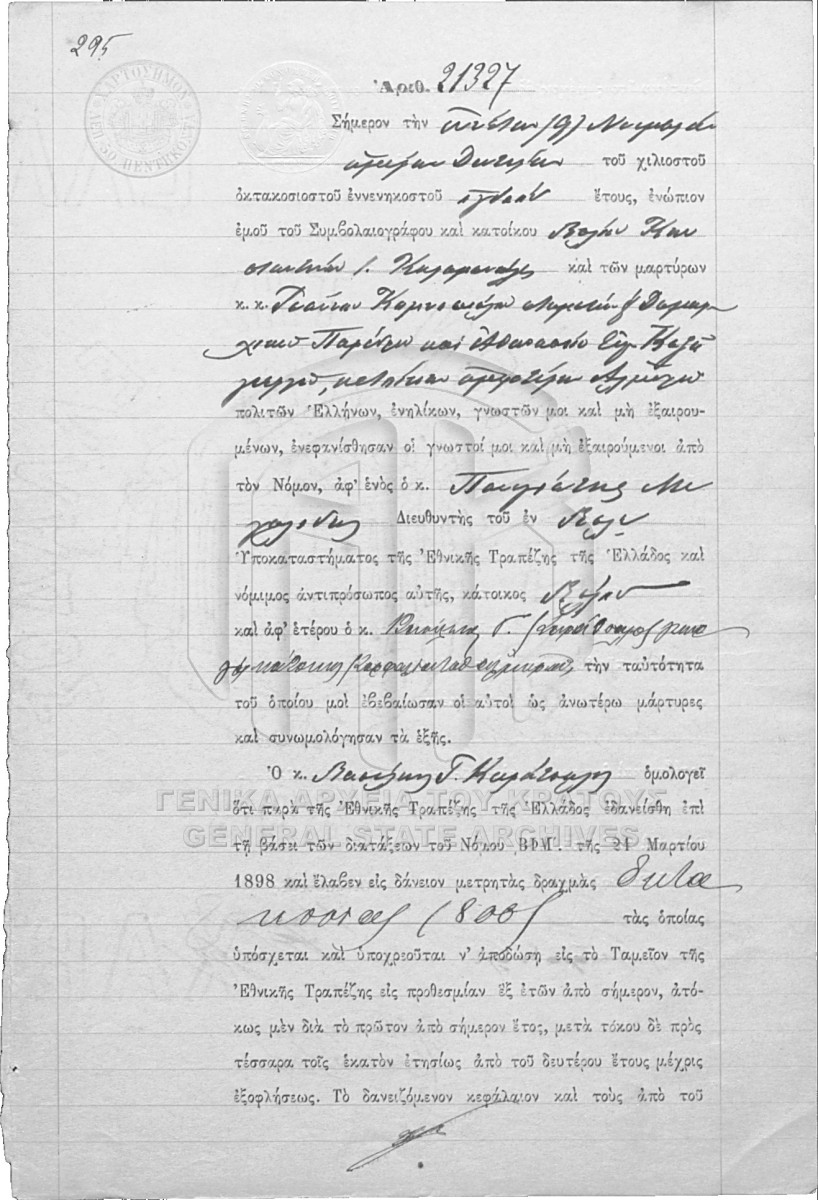 295
ΧΑΡΤΟΣΗΜΟΝ
ΛΕΠ. 50 ΠΕΝΤΗΚΟΝΤΑ
Ἀριθ. 21327
Σήμερον τὴν (9) Νοεμβρίου
ἡμέραν Δευτέραν τοῦ χιλιοστοῦ
ὀκτακοσιοστοῦ ἐννενηκοστοῦ ὀγδόου ἔτους, ἐνώπιον
ἐμοῦ τοῦ Συμβολαιογράφου καὶ κατοίκου Βόλου Κων
σταντίνου καὶ τῶν μαρτύρων
κ. κ. Ἰωάννου
Παρέδρου καὶ Ἀθανασίου
κατοίκων ἀμφοτέρων Ἁλμυροῦ
πολιτῶν Ἑλλήνων, ἐνηλίκων, γνωστῶν μοι καὶ μὴ ἐξαιρου-
μένων, ἐνεφανίσθησαν οἱ γνωστοί μοι καὶ μὴ ἐξαιρούμενοι ἀπὸ
τὸν Νόμον, ἀφ' ἑνὸς ὁ κ. Παναγιώτης Μι
χαλίδης Διευθυντὴς τοῦ ἐν Βόλῳ
Ὑποκαταστήματος τῆς Ἐθνικῆς Τραπέζης τῆς Ἑλλάδος καὶ
νόμιμος ἀντιπρόσωπος αὐτῆς, κάτοικος Βόλου
καὶ ἀφ' ἑτέρου ὁ κ. Βασίλειος Γ.
κάτοικος τὴν ταυτότητα
τοῦ ὁποίου μοὶ ἐβεβαίωσαν οἱ αὐτοὶ ὡς ἀνωτέρω μάρτυρες
καὶ συνωμολόγησαν τὰ ἑξῆς.
Ὁ κ. Βασίλειος Γ. ὁμολογεῖ
ὅτι παρὰ τῆς Ἐθνικῆς Τραπέζης τῆς Ἑλλάδος ἐδανείσθη ἐπὶ
ΓΕΝΙΚΑ ΑΡΧΕΙΑ ΤΟΥ ΚΡΑΤΟΥΣ
GENERAL STATE ARCHIVES
τῇ βάσει τῶν διατάξεων τοῦ Νόμου ΒΦΜ. τῆς 21 Μαρτίου
1898 καὶ ἔλαβεν εἰς δάνειον μετρητὰς δραχμὰς ὀκτα
κοσίας (800) τὰς ὁποίας
ὑπόσχεται καὶ ὑποχρεοῦται ν' ἀποδώσῃ εἰς τὸ Ταμεῖον τῆς
Ἐθνικῆς Τραπέζης εἰς προθεσμίαν ἓξ ἐτῶν ἀπὸ σήμερον, ἀτό-
κως μὲν διὰ τὸ πρῶτον ἀπὸ σήμερον ἔτος, μετὰ τόκου δὲ πρὸς
τέσσαρα τοῖς ἑκατὸν ἐτησίως ἀπὸ τοῦ δευτέρου ἔτους μέχρις
ἐξοφλήσεως. Τὸ δανειζόμενον κεφάλαιον καὶ τοὺς ἀπὸ τοῦ